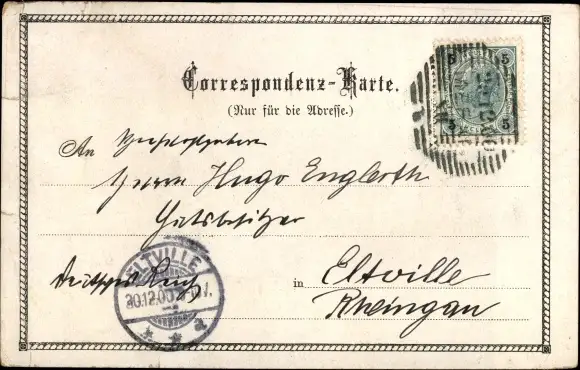 Correspondenz-Karte.
(Nur für die Adresse.)
5 5
5 5
An Hochwohlgeboren
Herrn Hugo Englerth
Gutsbesitzer
in Eltville
Deutsches Reich
Rheingau
ELTVILLE
30.12.00